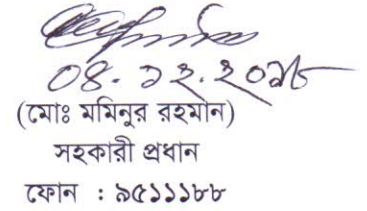 ০৪.১২.২০১৮
(মোঃ মমিনুর রহমান)
সহকারী প্রধান
ফোন : ৯৫১১১৮৮